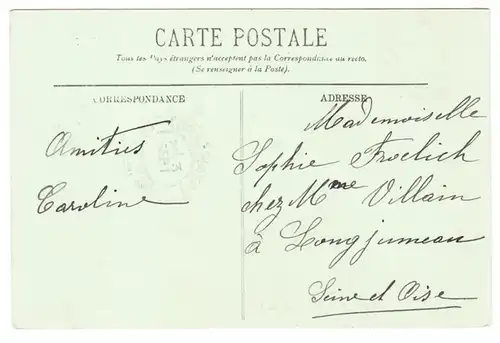 CARTE POSTALE
Tous les Pays étrangers n'acceptent pas la Correspondance au recto.
(Se renseigner à la Poste)
CORRESPONDANCE
ADRESSE
Amitiés
Caroline
Mademoiselle
Sophie Froelich
chez Mme Villain
à Longjumeau
Seine et Oise